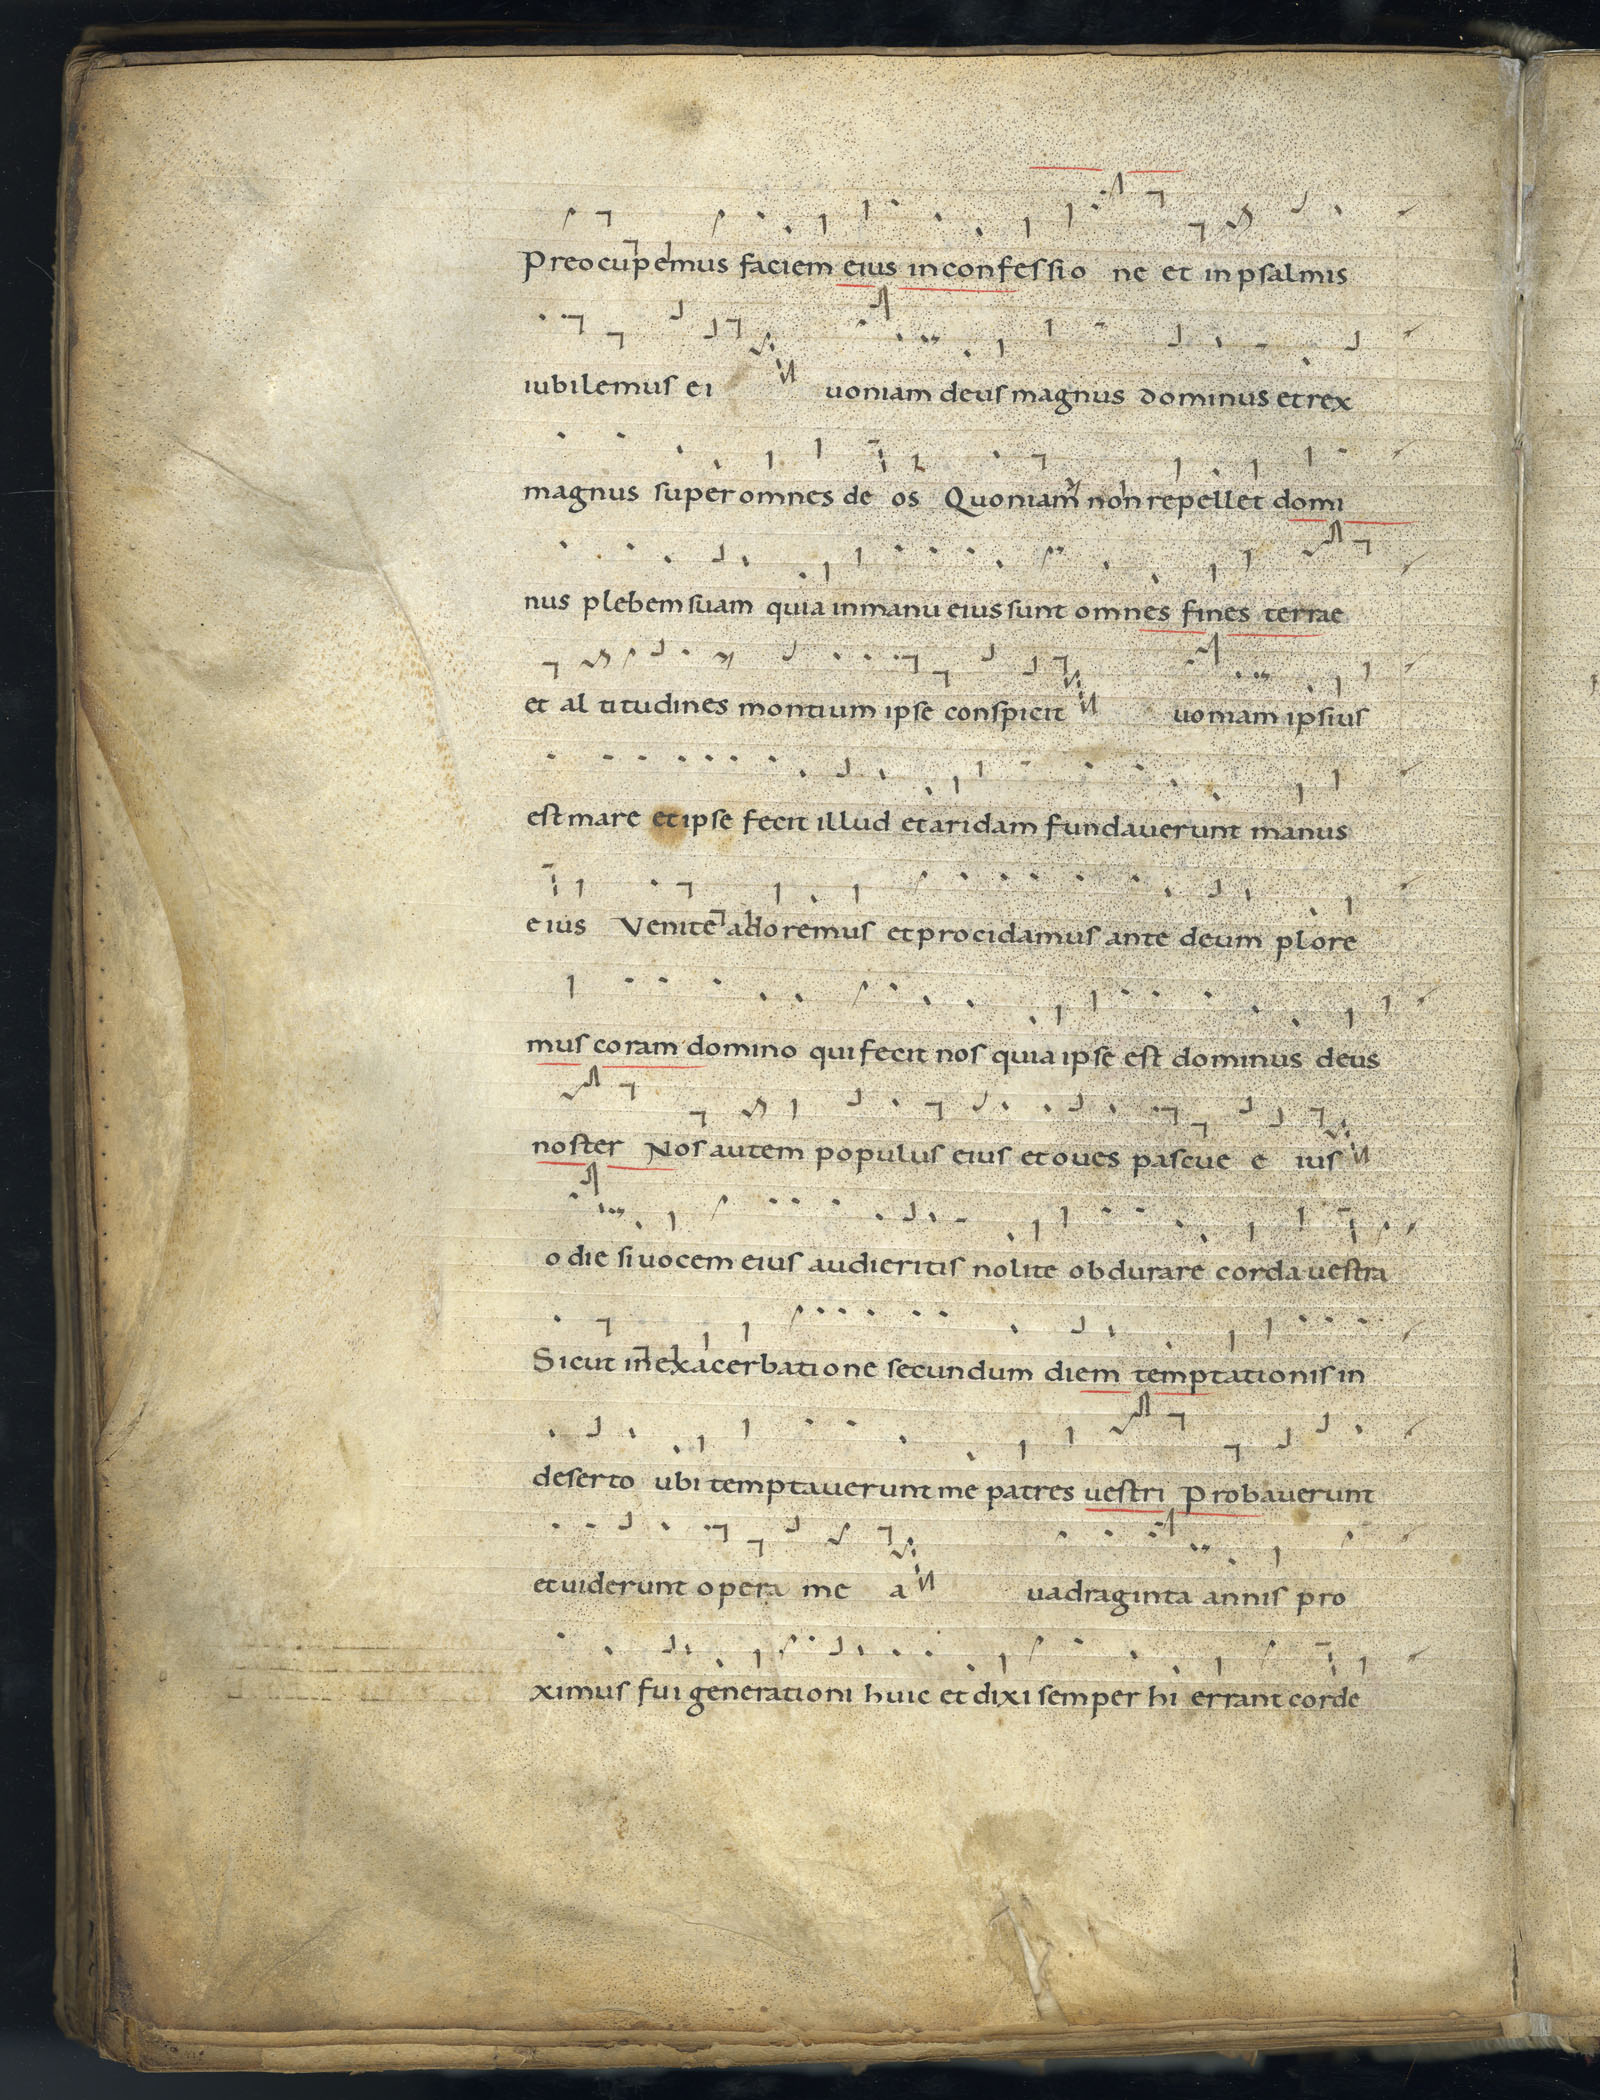 Preocupemus faciem eius inconfessio ne et in psalmis
iubilemus ei uoniam deus magnus dominus et rex
magnus super omnes de os Quoniam non repellet domi
nus plebem suam quia inmanu eius sunt omnes fines terrae
et al titudines montium ipse conspicit uoniam ipsius
est mare et ipse fecit illud et aridam fundauerunt manus
eius Venite adoremus et procidamus ante deum plore
mus coram domino qui fecit nos quia ipse est dominus deus
noster Nos autem populus eius et oues pascue e ius
odie si uocem eius audieritis nolite obdurare corda uestra
Sicut in exacerbatione secundum diem temptationis in
deserto ubi temptauerunt me patres uestri Probauerunt
et uiderunt opera me a uadraginta annis pro
ximus fui generationi huic et dixi semper hi errant corde